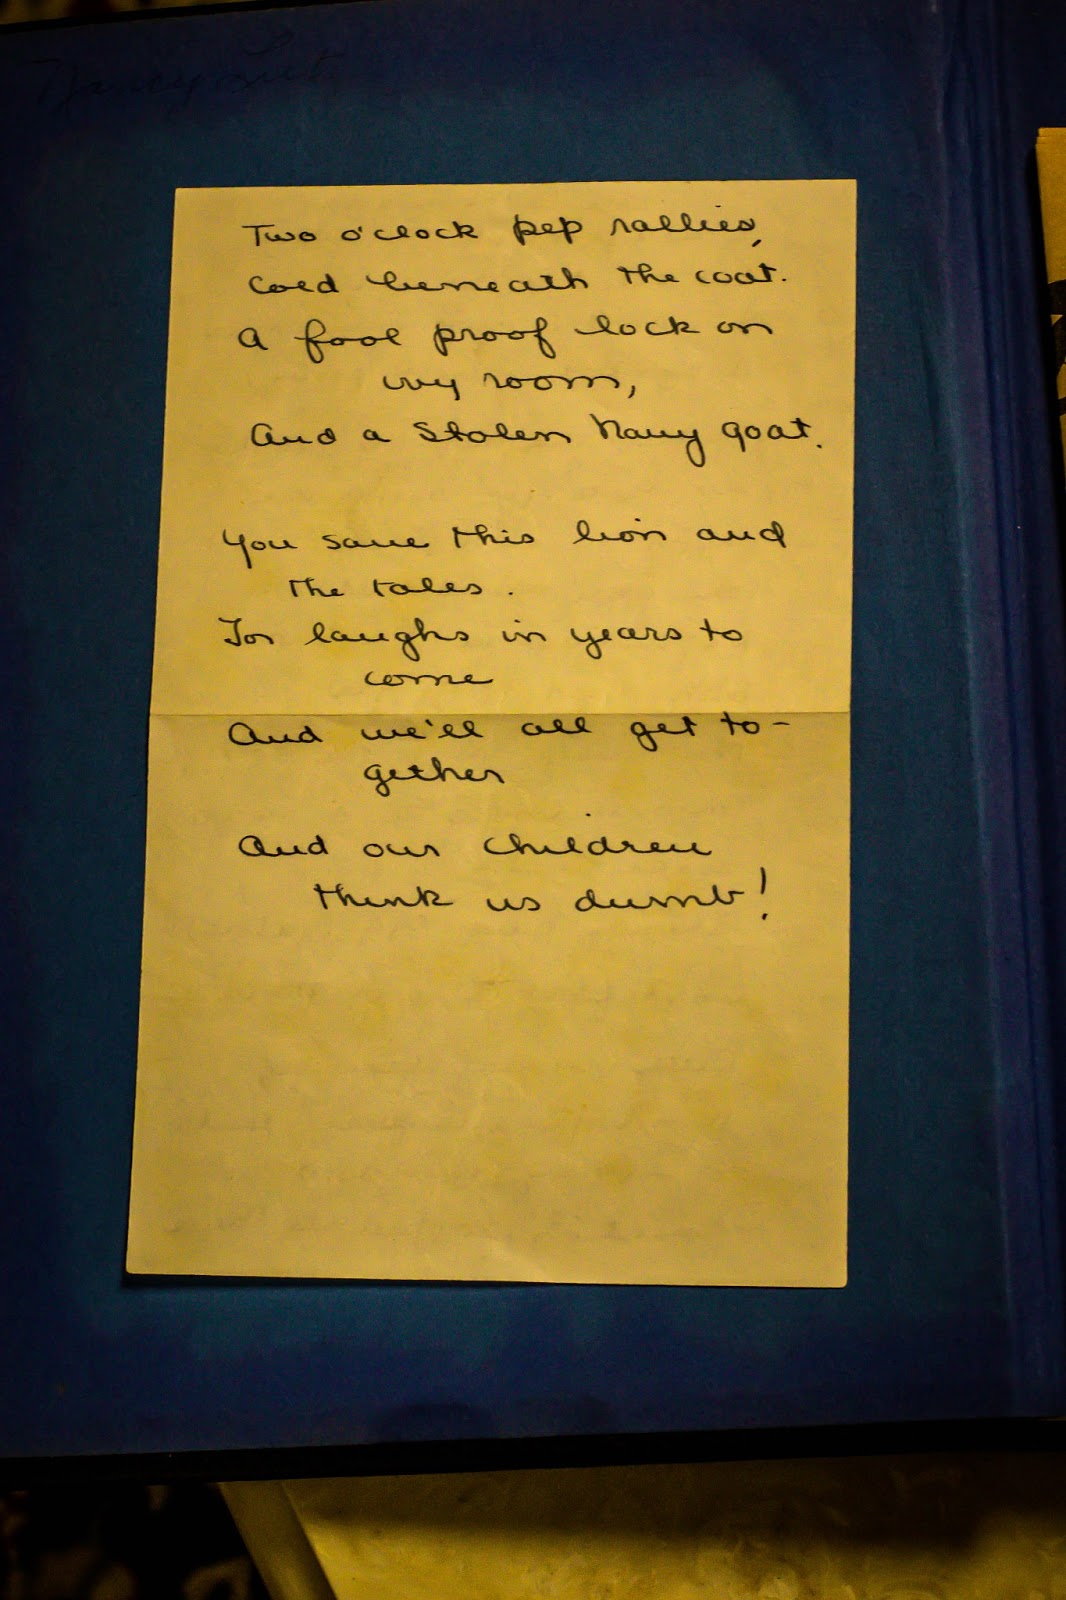 Nancy
Two o'clock pep rallies,
Cold beneath the coat.
A fool proof lock on
my room,
And a stolen Navy goat.
You save this lion and
the tales.
For laughs in years to
come
And we'll all get to-
gether
And our children
think us dumb!